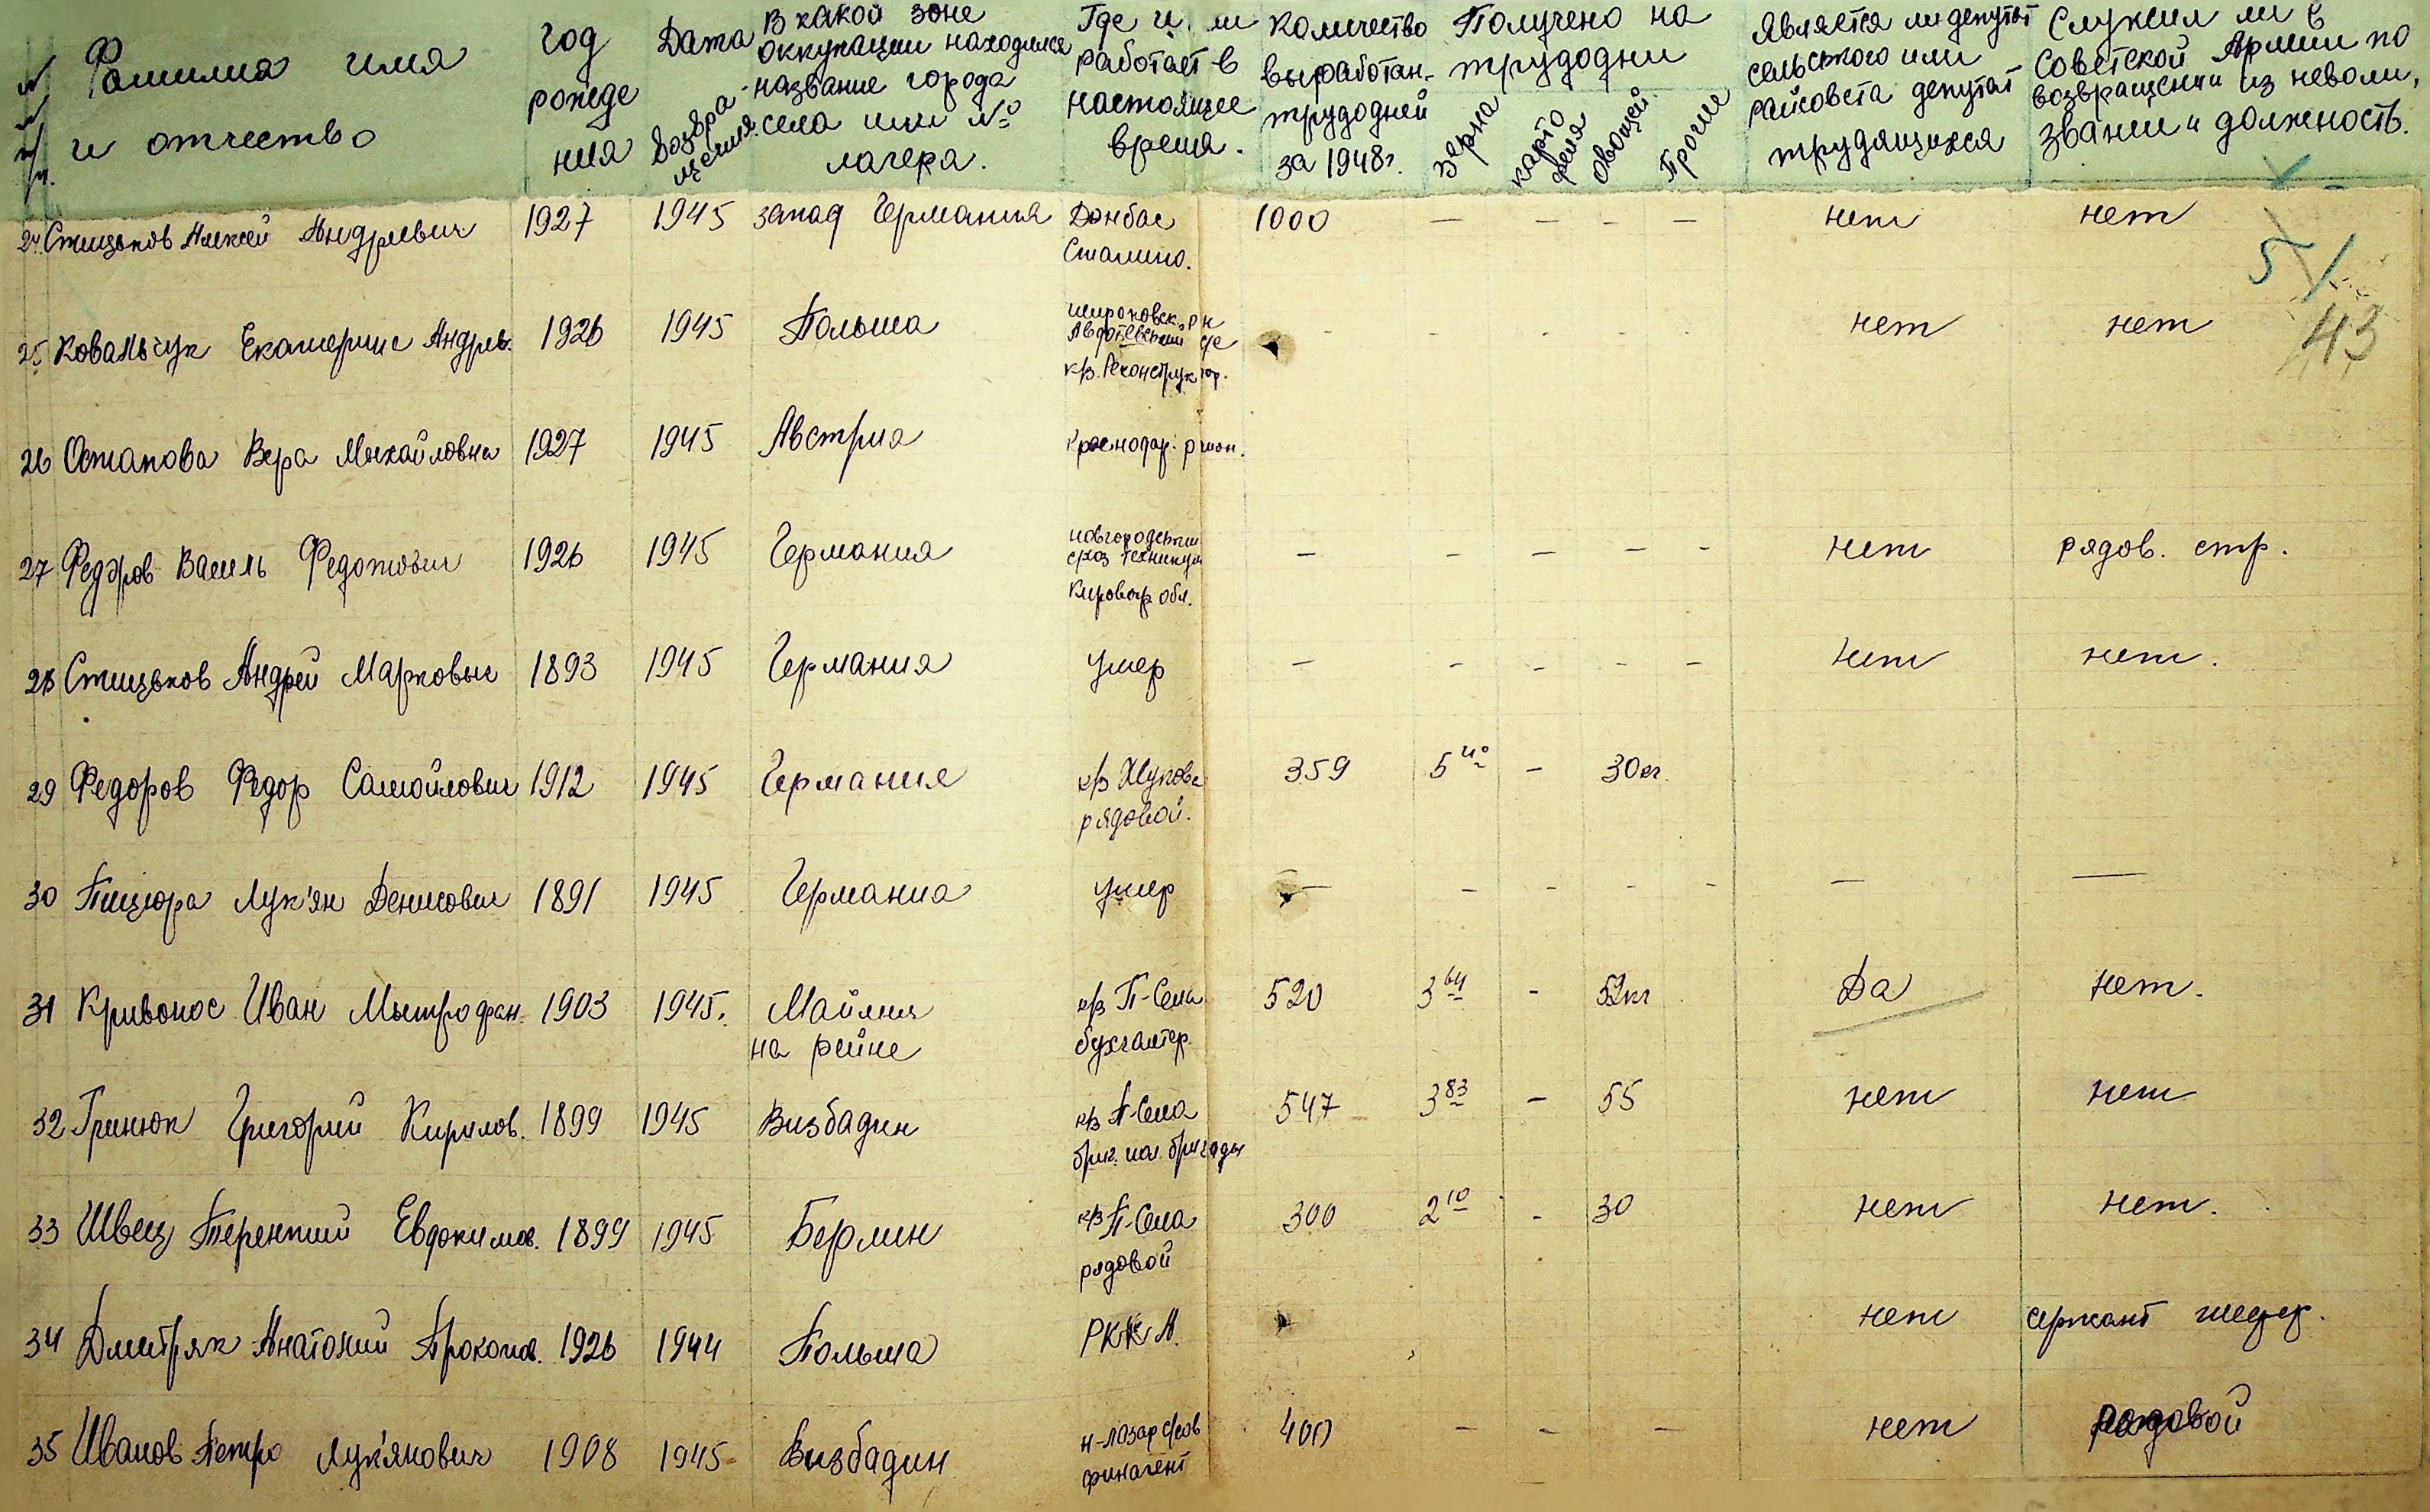 № п/п. Фамилия имя и отчество
год рождения
Дата возвращения
В какой зоне оккупации находился название города села или № лагеря.
Где и работает в настоящее время.
Количество выработан. трудодней за 1948г.
Получено на трудодни
зерна картофеля овощей Прочие
Является ли депутат сельского или райсовета депутат трудящихся
Служил ли в Советской Армии по возвращении из неволи, звание и должность.
24. Стицьков Алексей Андреевич 1927 1945 запад Германия Донбас 1000 — — — — нет нет
Сталино.
51
43
25 Ковальчук Екатерине Андрев. 1926 1945 Польша широковск. рн - - - - - нет нет
Авдотевский с/с
к/з. Реконструктор.
26 Остапова Вера Михайловна 1927 1945 Австрия Краснодар. район.
27 Федоров Василь Федотович 1926 1945 Германия новгородский — — — — - нет рядов. стр.
с/хоз техникум
Кировогр обл.
28 Стицьков Андрей Маркович 1893 1945 Германия умер — - - - — нет нет.
29 Федоров Федор Самойлович 1912 1945 Германия к/з Жукова 359 5 40 — 30кг.
рядовой.
30 Пицюра Лук'ян Денисович 1891 1945 Германия умер — - - - - — —
31 Кривонос Иван Мытрофан. 1903 1945. Майния к/з П-Села 520 3 64 - 52кг Да нет.
на рейне бухгалтер.
32 Гринюк Григорий Кирилов. 1899 1945 Визбадин к/з П-Села 547 3 83 - 55 нет нет
бриг. пол. бригады
33 Швец Терентий Евдокимов. 1899 1945 Берлин к/з П-Села 300 2 10 - 30 нет нет.
рядовой
34 Дмитряк Анатолий Прокопов. 1926 1944 Польша РККА. нет сержант
35 Иванов Петро Лук'янович 1908 1945 Визбадин н-лозар с/сов 400 — - — нет рядовой
финагент